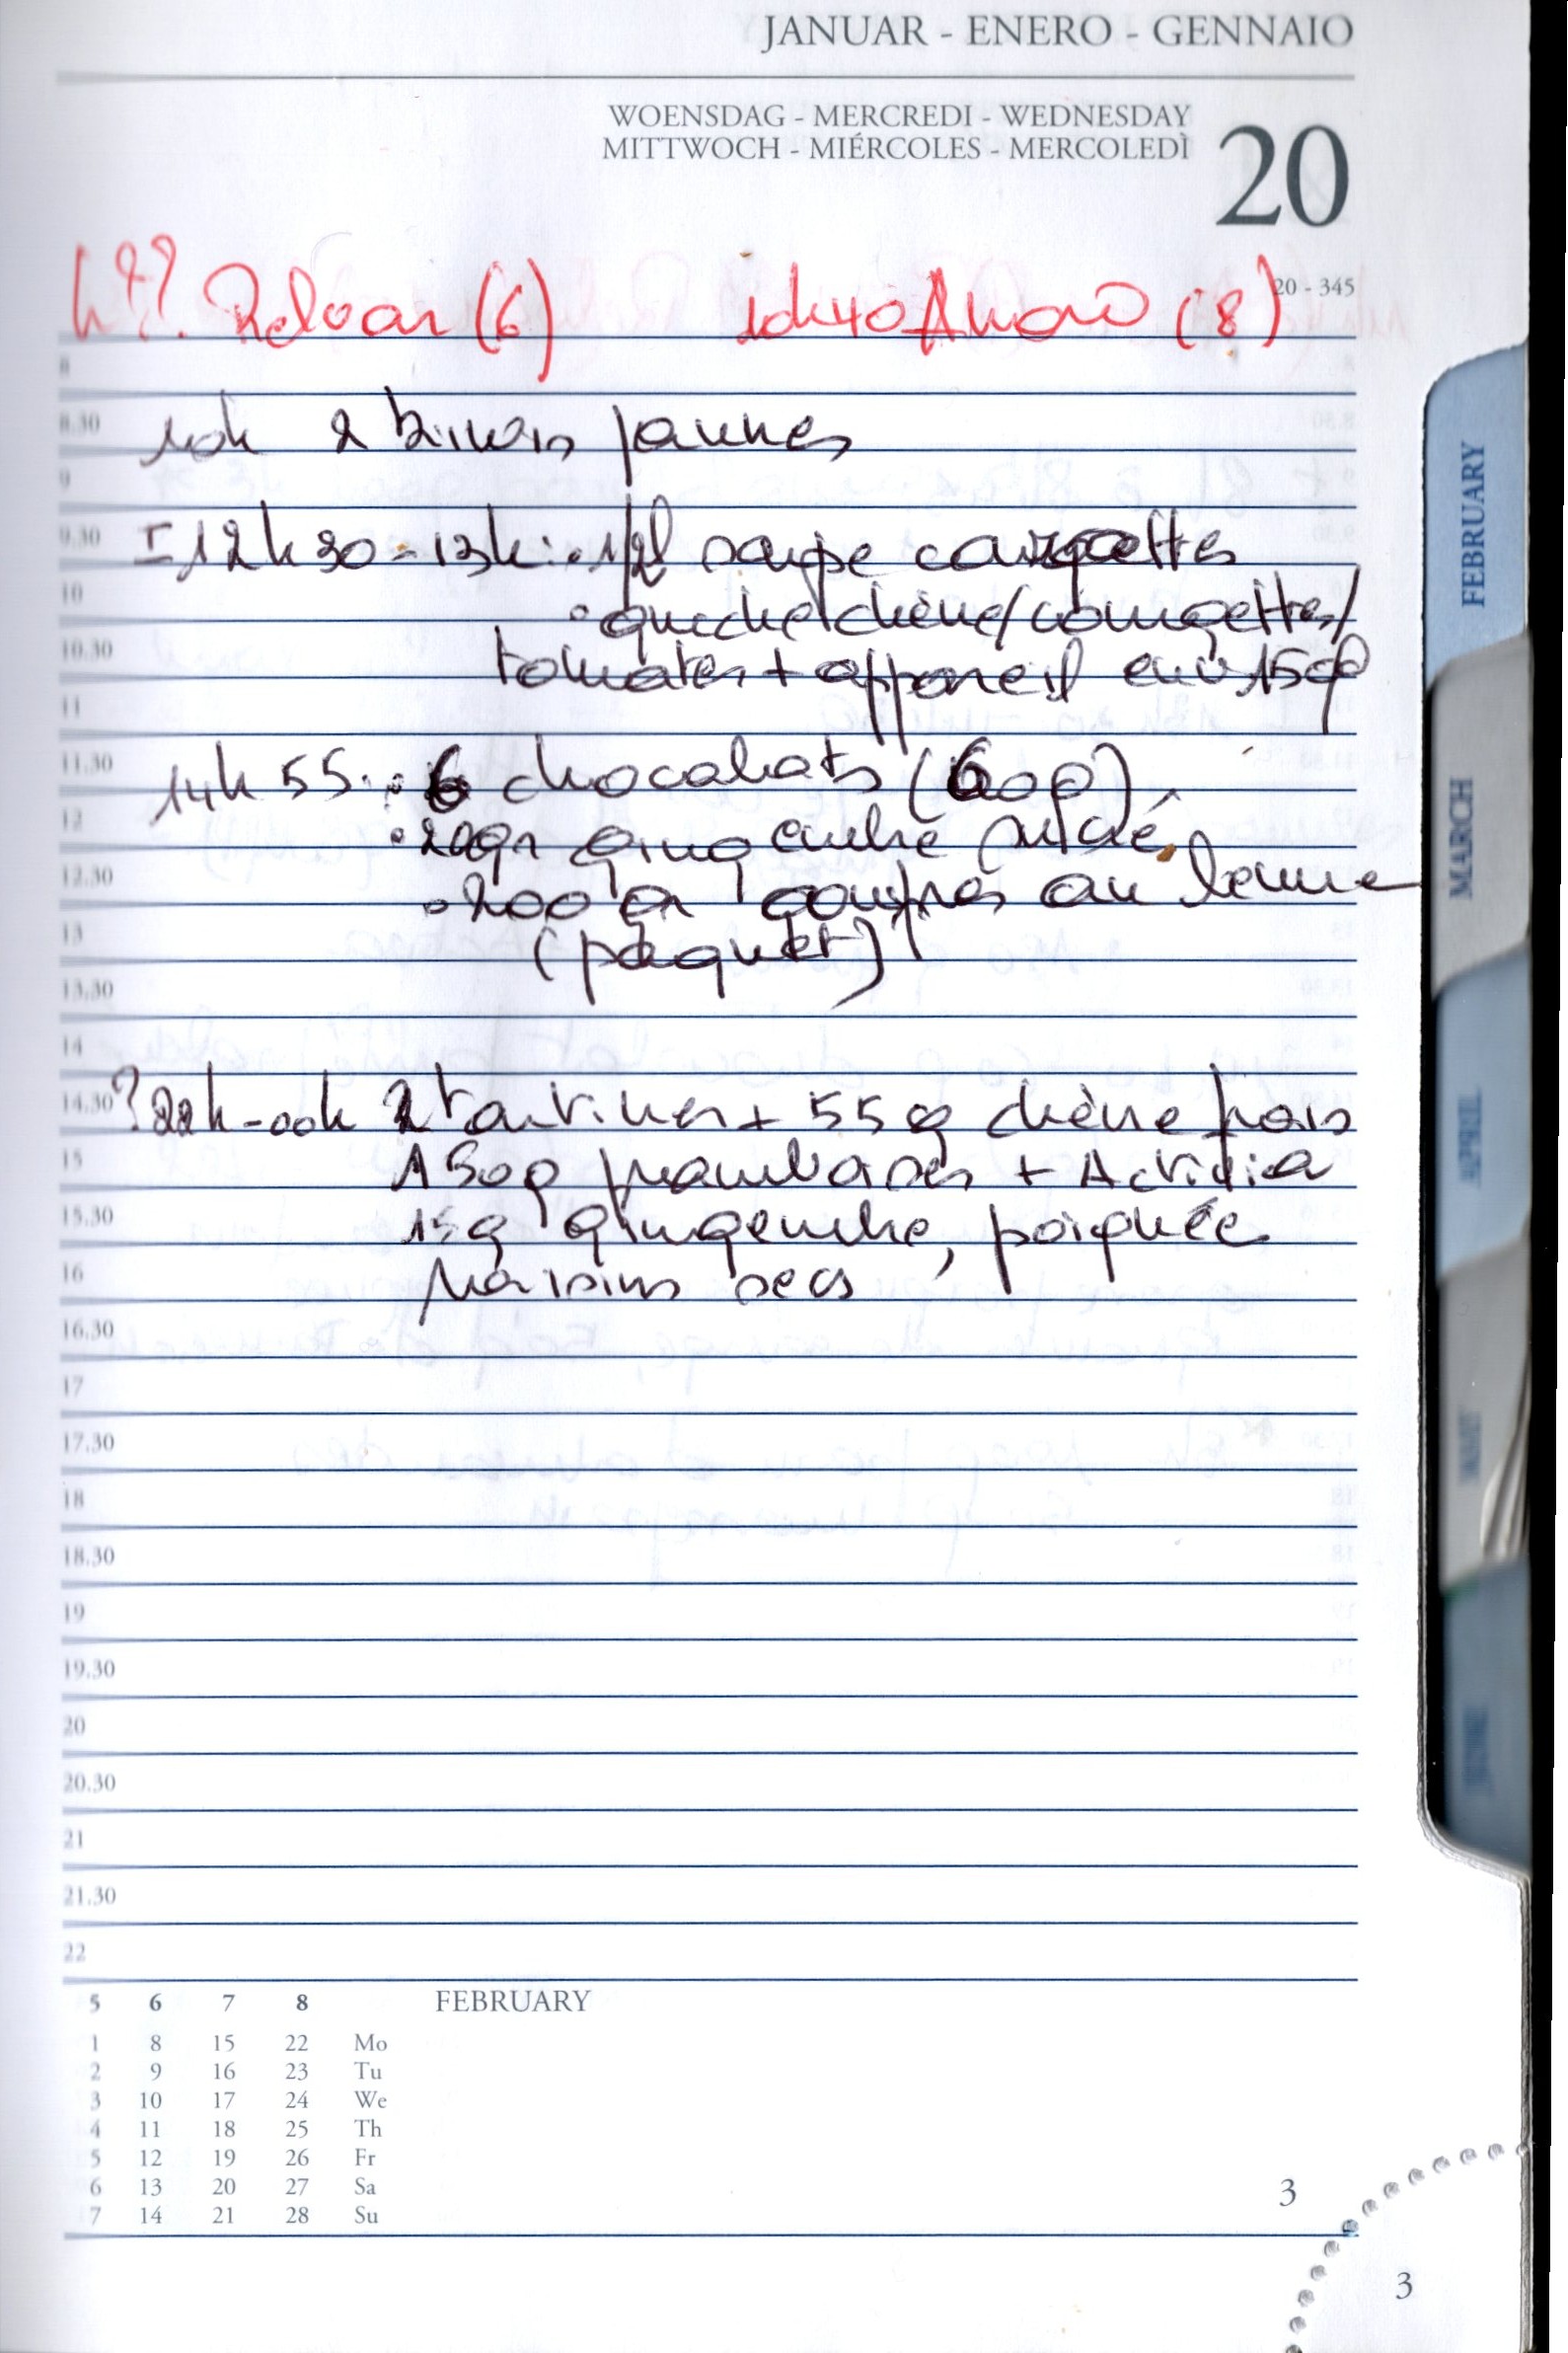 JANUAR - ENERO - GENNAIO
WOENSDAG - MERCREDI - WEDNESDAY
MITTWOCH - MIÉRCOLES - MERCOLEDÌ
20
20 - 345
h?? (6) (8)
8
8.30 10h 2 kiwis jaunes
9
9.30 12h30 - 13h: 1/2l soupe courgettes
10 quiche/chèvre/courgettes/
10.30 tomates + appareil env 150g
11
11.30 14h55: 6 chocolats (60g)
12 20gr gingembre
12.30 200 gr gaufres au beurre
13 (paquet)
13.30
14
14.30 ? 22h-00h 2 tartines + 55g chèvre frais
15 150g framboises + Activia
15.30 15g gingembre, poignée
16 raisins secs
16.30
17
17.30
18
18.30
19
19.30
20
20.30
21
21.30
22
5 6 7 8 FEBRUARY
1 8 15 22 Mo
2 9 16 23 Tu
3 10 17 24 We
4 11 18 25 Th
5 12 19 26 Fr
6 13 20 27 Sa
7 14 21 28 Su
3
3
FEBRUARY
MARCH
APRIL
MAY
JUNE